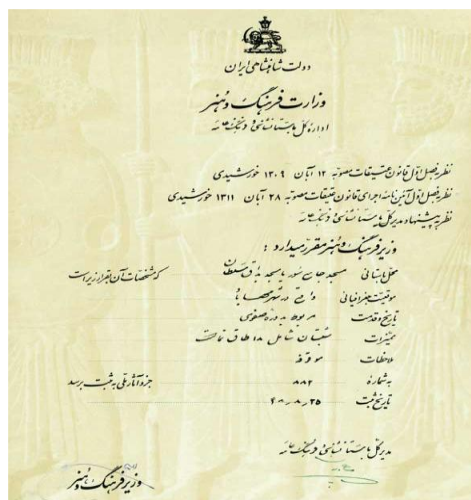 دولت شاهنشاهی ایران
وزارت فرهنگ و هنر
اداره کل باستانشناسی و فرهنگ عامه
نظر به فصل اول قانون عتیقات مصوبه ۱۲ آبان ۱۳۰۹ خورشیدی
نظر به فصل اول آئین نامه اجرای قانون عتیقات مصوبه ۲۸ آبان ۱۳۱۱ خورشیدی
نظر به پیشنهاد مدیر کل باستانشناسی و فرهنگ عامه
وزیر فرهنگ و هنر مقرر میدارد :
محل باستانی مسجد جامع که مشخصات آن بقرار زیر است
موقعیت جغرافیائی واقع در
تاریخ و قدمت مربوط بدوره صفوی
ممیزات شبستان شامل ۱۸ طاق
ملاحظات موقوفه
به شماره ۸۸۲ جزو آثار ملی به ثبت برسد
تاریخ ثبت ۴۸٫۸٫۲۵
مدیر کل باستانشناسی و فرهنگ عامه
وزیر فرهنگ و هنر